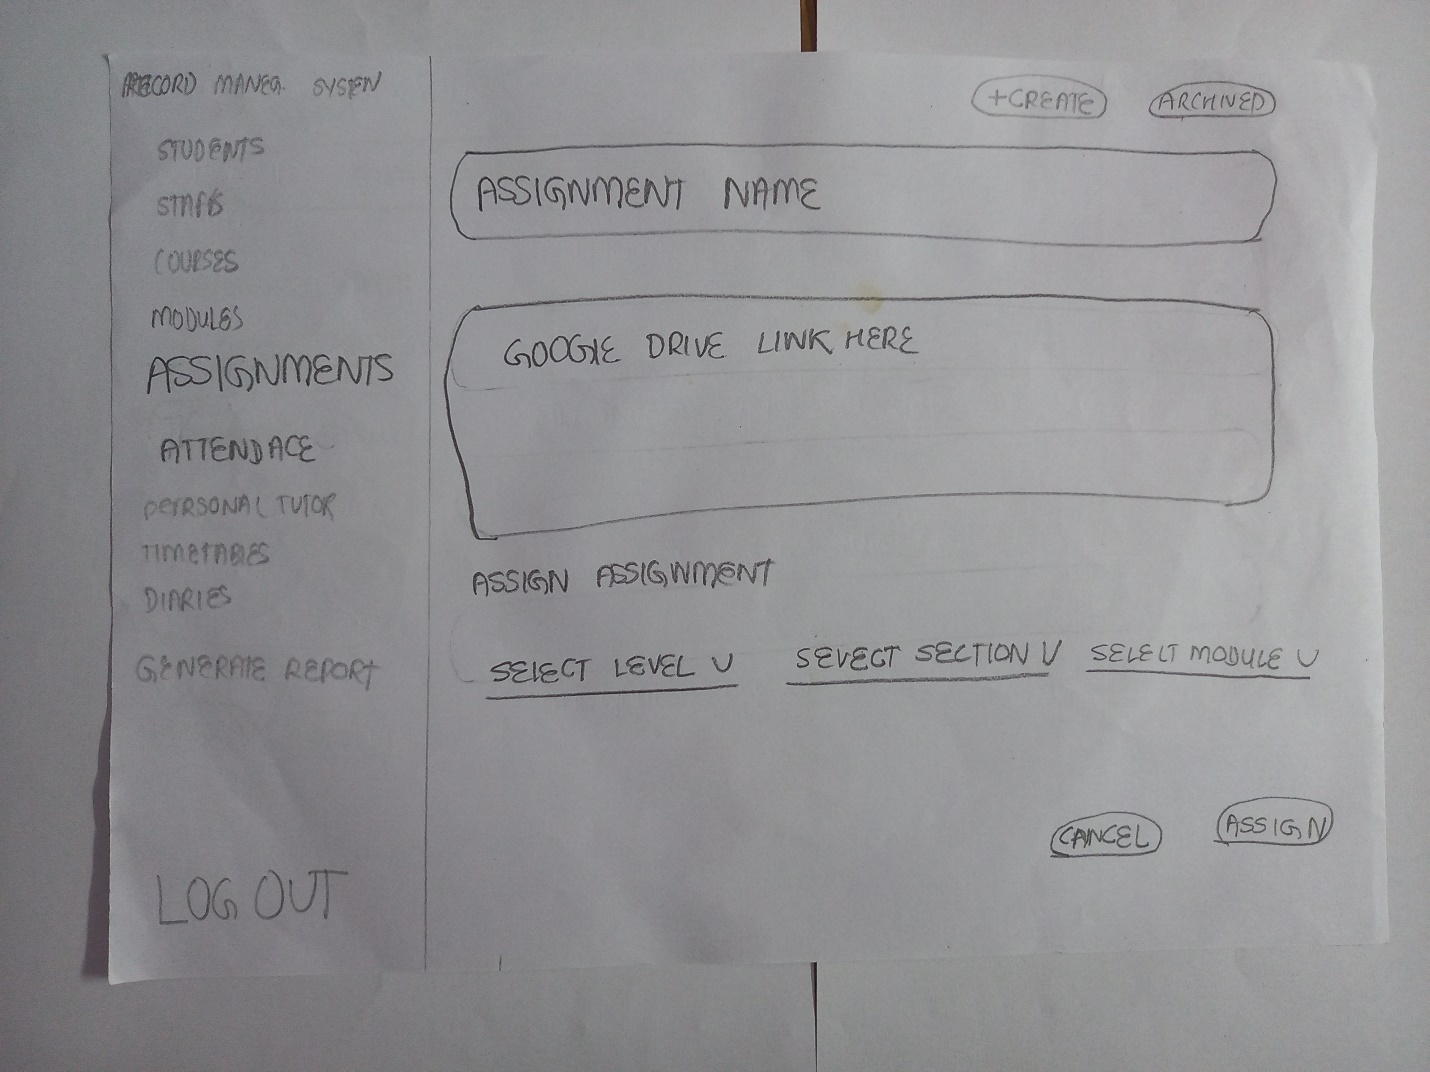 RECORD MANEG. SYSTEM
STUDENTS
STAFFS
COURSES
MODULES
ASSIGNMENTS
ATTENDACE
PERSONAL TUTOR
TIMETABLES
DIARIES
GENERATE REPORT
LOG OUT
+CREATE ARCHIVED
ASSIGNMENT NAME
GOOGLE DRIVE LINK HERE
ASSIGN ASSIGNMENT
SELECT LEVEL V SELECT SECTION V SELECT MODULE V
CANCEL ASSIGN